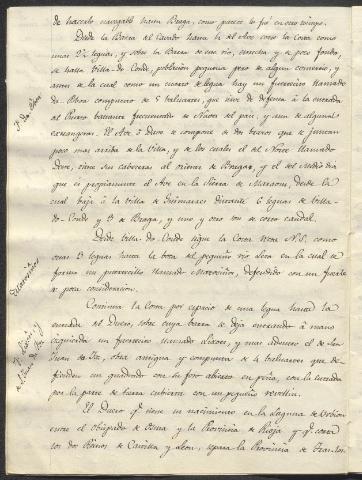 de hacerlo navegable hasta Braga, como parece lo fué en otro tiempo.
Desde la Barra al Cavado hasta la del Ave corre la Costa como
unas 2½ leguas, y sobre la Barra de este rio, estrecha y de poco fondo,
se halla Villa-do Conde, poblacion pequeña pero de algun comercio, y
antes de la cual como un cuarto de legua hay un fuertecito llamado
da Obra compuesto de 5 baluartes, que sirve de defensa á la entrada
al Puerto bastante frecuentado de Naves del pais, y aun de algunas
extrangeras. El Ave ó Deve se compone de dos brazos que se juntan
poco mas arriba de la Villa, y de los cuales el del Norte llamado
Deve, tiene sus cabeceras al oriente de Braga, y el del Mediodia
que es propiamente el Ave en la Sierra de Maraon, desde la
cual baja á la Villa de Guimaraes distante 6 leguas de Villa-
do-Conde y 3 de Braga, y uno y otro son de corto caudal.
Desde Villa-do-Conde sigue la Costa N.S. como
otras 3 leguas hasta la boca del pequeño rio Leza en la cual se
forma un puertecillo llamado Matosiños, defendido con un fuerte
de poca consideracion.
Matosiños
Continua la Costa por espacio de una legua hasta la
entrada al Duero, sobre cuya barra se deja entrando á mano
izquierda un fuertecito llamado y mas adentro el de San
Juan de Foz, obra antigua y compuesta de 4 baluartes que de-
fienden un quadrado con su foso abierto en peña, con la entrada
por la parte de tierra cubierta con un pequeño revellin.
El Duero q.e tiene su nacimiento en la Laguna de Orbion
entre el Obispado de Osma y la Provincia de Rioja y q.e corta
los dos Reinos de Castilla y Leon, separa la Provincia de Tras-los-